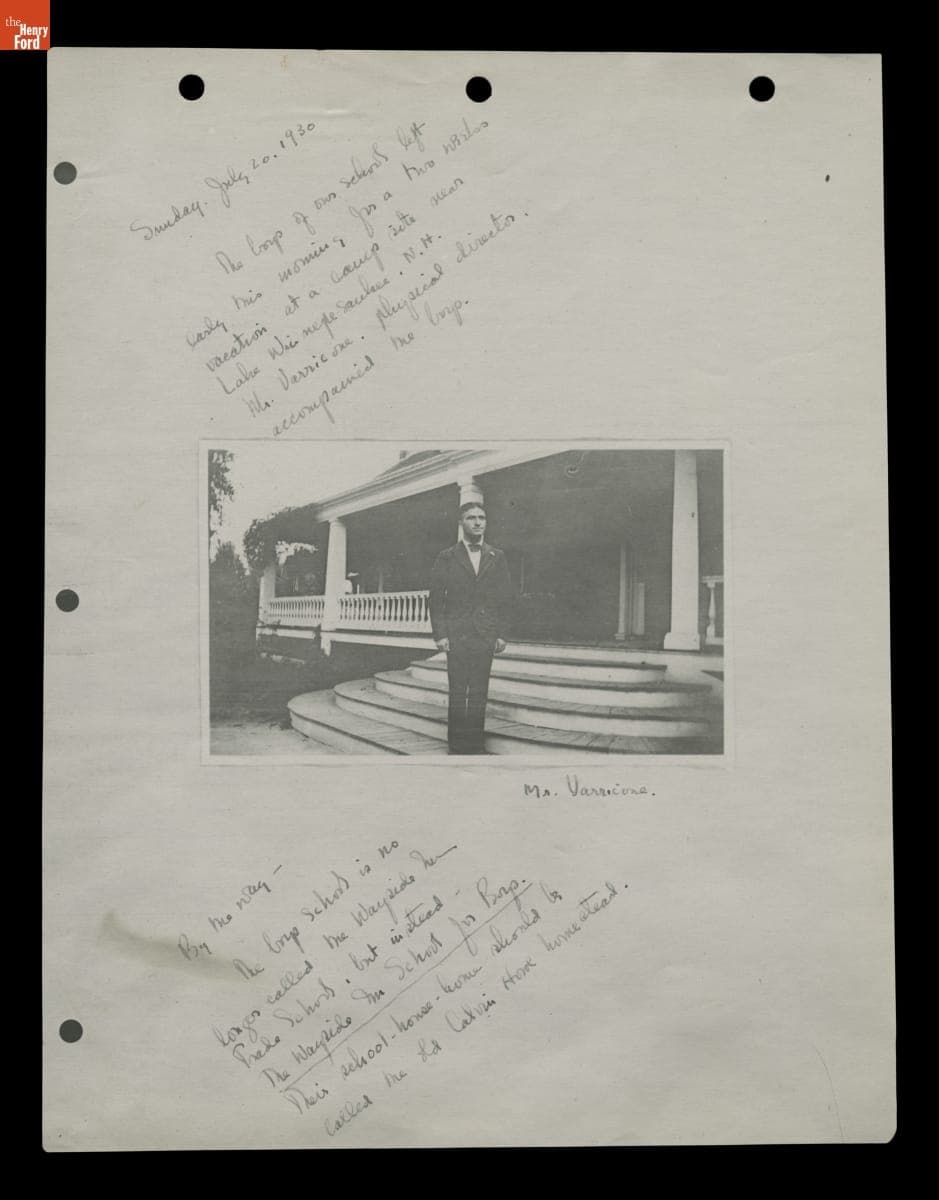 the
Henry
Ford
Sunday. July 20. 1930
The boys of our school left
early this morning for a two weeks
vacation at a camp site near
Lake Winnepesaukee. N.H.
Mr. Varricone. physical director.
accompanied the boys.
Mr. Varricone.
By the way -
The boys School is no
longer called the Wayside Inn
Trade School, but instead -
The Wayside Inn School for Boys.
Their school-house-home should be
called the old Calvin Howe homestead.